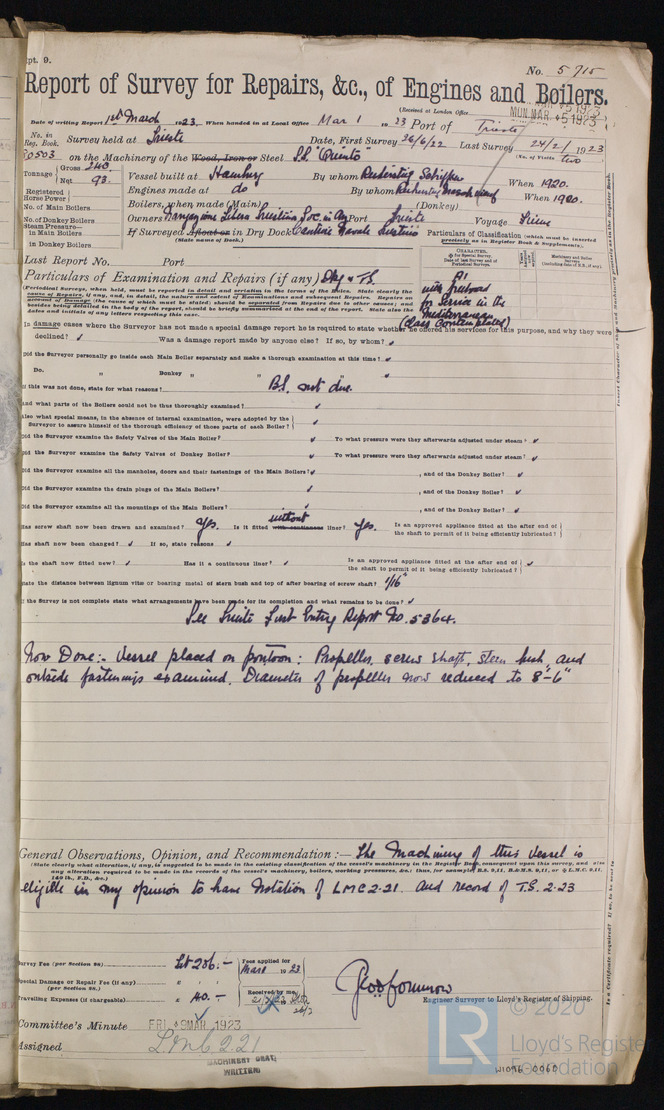 pt. 9.
No. 5715
Report of Survey for Repairs, &c., of Engines and Boilers.
(Received at London Office MON. MAR 5 1923)
Date of writing Report 1st March 1923. When handed in at Local Office Mar 1 1923 Port of Trieste
No. in Reg. Book. Survey held at Trieste Date, First Survey 26/6/22 Last Survey 24/2/1923
30503 on the Machinery of the Wood, Iron or Steel S.S. "Quinto" (No. of Visits two)
Tonnage Gross 240. Net 93. Vessel built at Hamburg By whom When 1920.
Registered Horse Power Engines made at do By whom When 1920.
No. of Main Boilers Boilers, when made (Main) (Donkey)
No. of Donkey Boilers Owners Libera Triestina Soc. in Port Trieste Voyage
Steam Pressure— in Main Boilers If Surveyed Afloat or in Dry Dock Cantiere Navale Triestino
in Donkey Boilers (State name of Dock.)
Particulars of Classification (which must be inserted precisely as in Register Book & Supplements).
Last Report No. Port
CHARACTER.
Particulars of Examination and Repairs (if any) Dkg & T.S.
A1
with freeboard
for Service in the
Mediterranean
(Class Contemplated)
(Periodical Surveys, when held, must be reported in detail and seriatim in the terms of the Rules. State clearly the
cause of Repairs, if any, and, in detail, the nature and extent of Examinations and subsequent Repairs. Repairs on
account of Damage (the cause of which must be stated) should be separated from Repairs due to other causes; and
besides being detailed in the body of the report, should be briefly summarised at the end of the report. State also the
dates and initials of any letters respecting this case.
In damage cases where the Surveyor has not made a special damage report he is required to state whether he offered his services for this purpose, and why they were
declined? Was a damage report made by anyone else? If so, by whom?
Did the Surveyor personally go inside each Main Boiler separately and make a thorough examination at this time?
Do. „ Donkey „ „ „
If this was not done, state for what reasons? B.S. not due.
And what parts of the Boilers could not be thus thoroughly examined?
Also what special means, in the absence of internal examination, were adopted by the
Surveyor to assure himself of the thorough efficiency of those parts of each Boiler?
Did the Surveyor examine the Safety Valves of the Main Boiler? To what pressure were they afterwards adjusted under steam?
Did the Surveyor examine the Safety Valves of Donkey Boiler? To what pressure were they afterwards adjusted under steam?
Did the Surveyor examine all the manholes, doors and their fastenings of the Main Boilers? , and of the Donkey Boiler?
Did the Surveyor examine the drain plugs of the Main Boilers? , and of the Donkey Boiler?
Did the Surveyor examine all the mountings of the Main Boilers? , and of the Donkey Boiler?
Has screw shaft now been drawn and examined? Yes. Is it fitted with continuous without liner? Yes. Is an approved appliance fitted at the after end of
the shaft to permit of it being efficiently lubricated?
Has shaft now been changed? If so, state reasons
Is the shaft now fitted new? Has it a continuous liner? Is an approved appliance fitted at the after end of
the shaft to permit of it being efficiently lubricated?
State the distance between lignum vitæ or bearing metal of stern bush and top of after bearing of screw shaft? 1/16"
If the Survey is not complete state what arrangements have been made for its completion and what remains to be done?
See Trieste First Entry Report No. 5364.
Now Done:- Vessel placed on pontoon: Propeller, screw shaft, stern bush, and
outside fastenings examined. Diameter of propeller now reduced to 8'-6"
General Observations, Opinion, and Recommendation:— The Machinery of this Vessel is
(State clearly what alteration, if any, is suggested to be made in the existing classification of the vessel's machinery in the Register Book, consequent upon this survey, and also
any alteration required to be made in the records of the vessel's machinery, boilers, working pressures, &c.: thus, for example,
eligible in my opinion to have Notation of LMC 2.21. and record of T.S. 2.23
Survey Fee (per Section 28) Lit 206:- Fees applied for Mar 1 1923
Special Damage or Repair Fee (if any) £ (per Section 28.)
Travelling Expenses (if chargeable) £ 40.- Received by me,
Engineer Surveyor to Lloyd's Register of Shipping.
Committee's Minute FRI. 9 MAR 1923
Assigned LMC 2.21
MACHINERY CERT. WRITTEN
© 2020
LR Lloyd's Register Foundation
W1096-0060